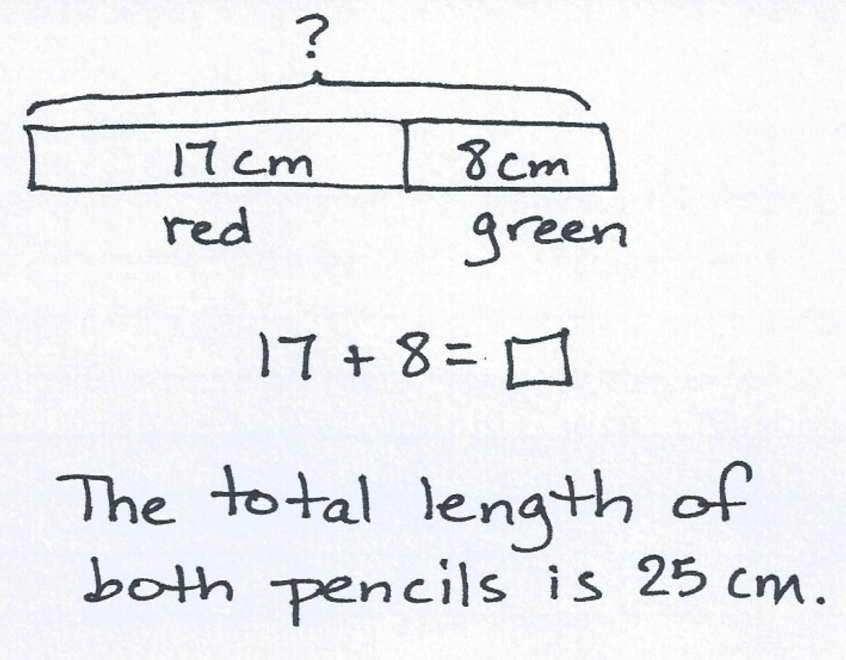 ?
17 cm 8 cm
red green
17 + 8 = □
The total length of
both pencils is 25 cm.